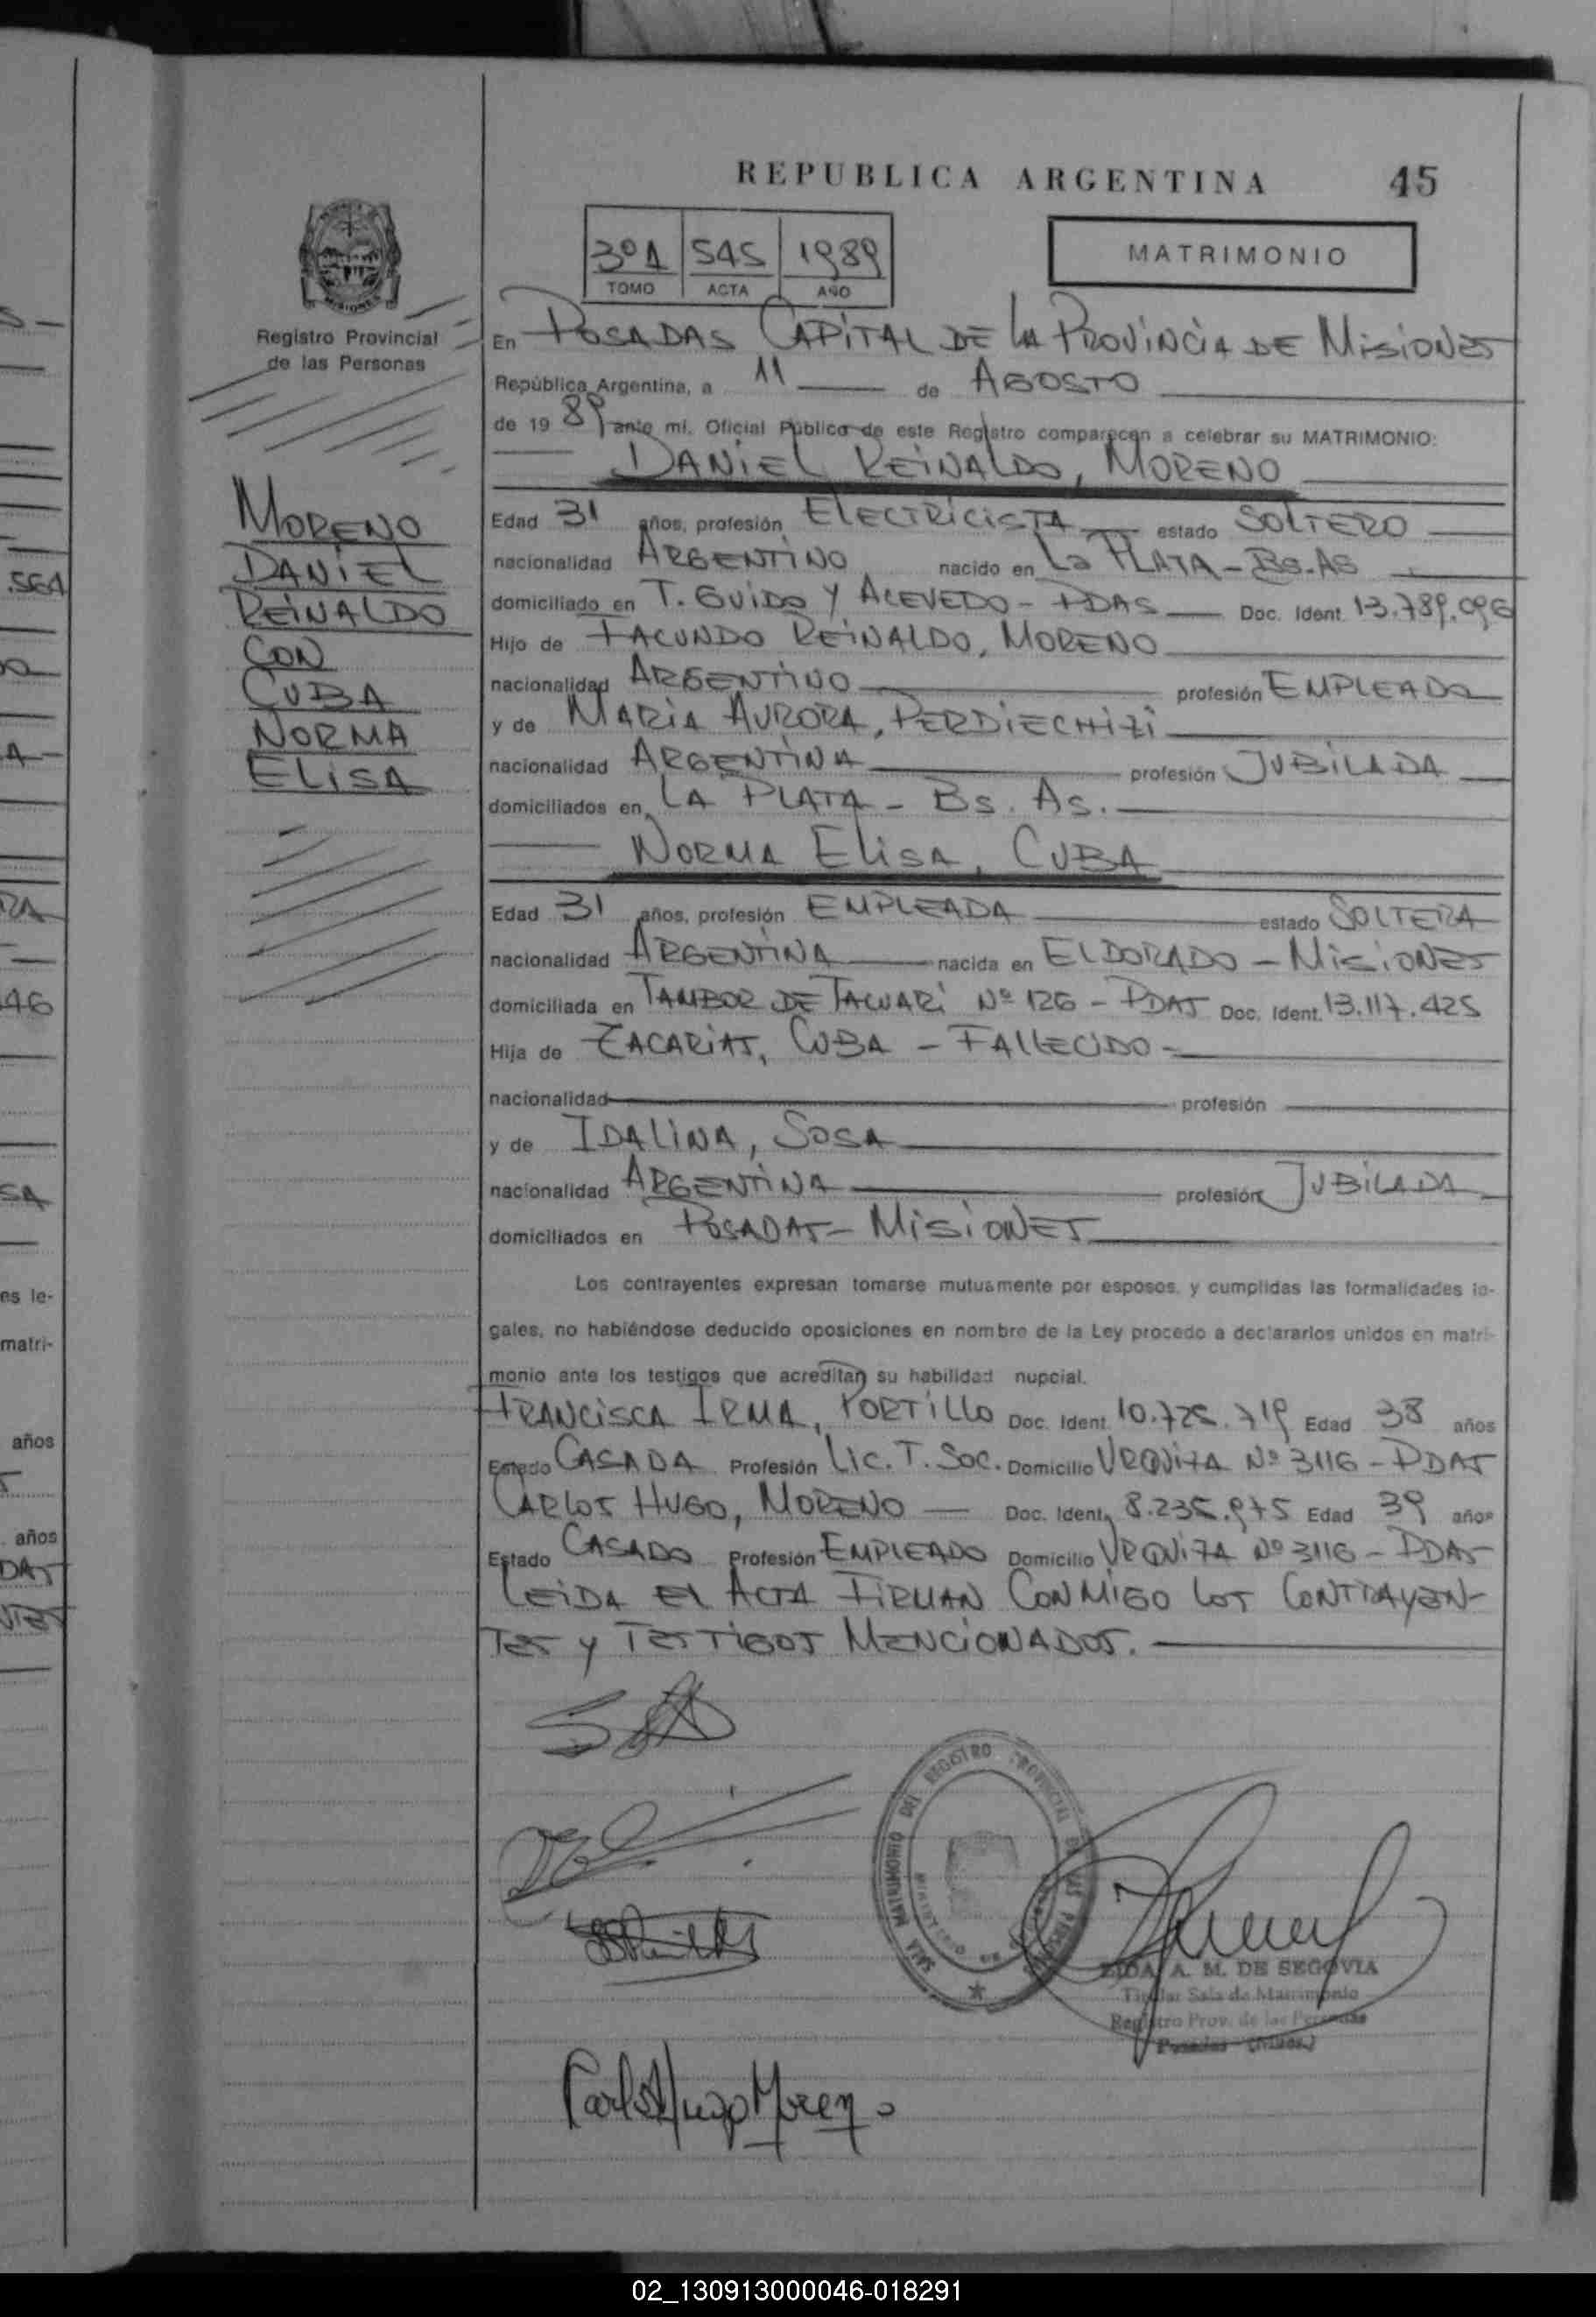 REPUBLICA ARGENTINA 45
3º1 545 1989
TOMO ACTA AÑO
MATRIMONIO
MISIONES
Registro Provincial
de las Personas
En POSADAS CAPITAL DE LA PROVINCIA DE MISIONES
República Argentina, a 11 de AGOSTO
de 1989 ante mi, Oficial Público de este Registro comparecen a celebrar su MATRIMONIO:
DANIEL REINALDO, MORENO
MORENO
DANIEL
REINALDO
CON
CUBA
NORMA
ELISA
Edad 31 años, profesión ELECTRICISTA estado SOLTERO
nacionalidad ARGENTINO nacido en La PLATA - BS.AS
domiciliado en T. GUIDO Y ACEVEDO - PDAS Doc. Ident. 13.789.096
Hijo de FACUNDO REINALDO, MORENO
nacionalidad ARGENTINO profesión EMPLEADO
y de MARIA AURORA, PERDIECHIZI
nacionalidad ARGENTINA profesión JUBILADA
domiciliados en LA PLATA - BS. AS.
NORMA ELISA, CUBA
Edad 31 años, profesión EMPLEADA estado SOLTERA
nacionalidad ARGENTINA nacida en ELDORADO - MISIONES
domiciliada en TAMBOR DE TACUARI Nº 126 - PDAS Doc. Ident. 13.117.425
Hija de ZACARIAS, CUBA - FALLECIDO -
nacionalidad profesión
y de IDALINA, SOSA
nacionalidad ARGENTINA profesión JUBILADA
domiciliados en POSADAS - MISIONES
Los contrayentes expresan tomarse mutuamente por esposos, y cumplidas las formalidades le-
gales, no habiéndose deducido oposiciones en nombre de la Ley procedo a declararlos unidos en matri-
monio ante los testigos que acreditan su habilidad nupcial.
FRANCISCA IRMA, PORTILLO Doc. Ident. 10.725.719 Edad 38 años
Estado CASADA Profesión LIC. T. SOC. Domicilio URQUIZA Nº 3116 - PDAS
CARLOS HUGO, MORENO Doc. Ident. 8.235.975 Edad 39 años
Estado CASADO Profesión EMPLEADO Domicilio URQUIZA Nº 3116 - PDAS
LEIDA EL ACTA FIRMAN CONMIGO LOS CONTRAYEN-
TES Y TESTIGOS MENCIONADOS.
SALA MATRIMONIO DEL REGISTRO PROVINCIAL DE LAS PERSONAS
A. M. DE SEGOVIA
Titular Sala de Matrimonio
Registro Prov. de las Personas
Posadas (Mnes.)
Carlos Hugo Moreno
02_130913000046-018291